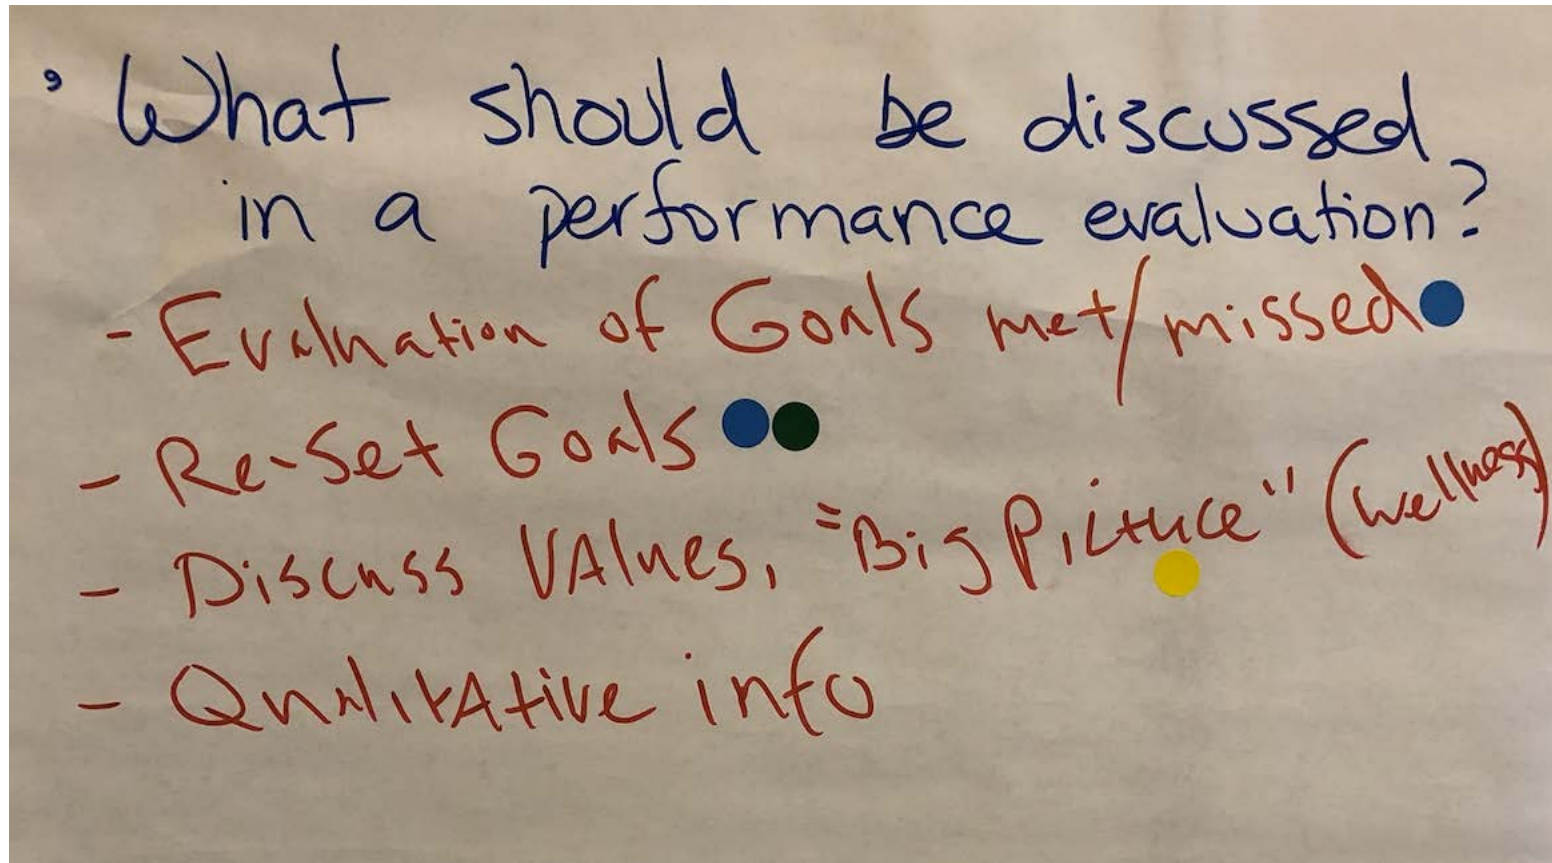 • What should be discussed
in a performance evaluation?
- Evaluation of Goals met/missed
- Re-Set Goals
- Discuss VAlues, "Big Picture" (wellness)
- QualitAtive info